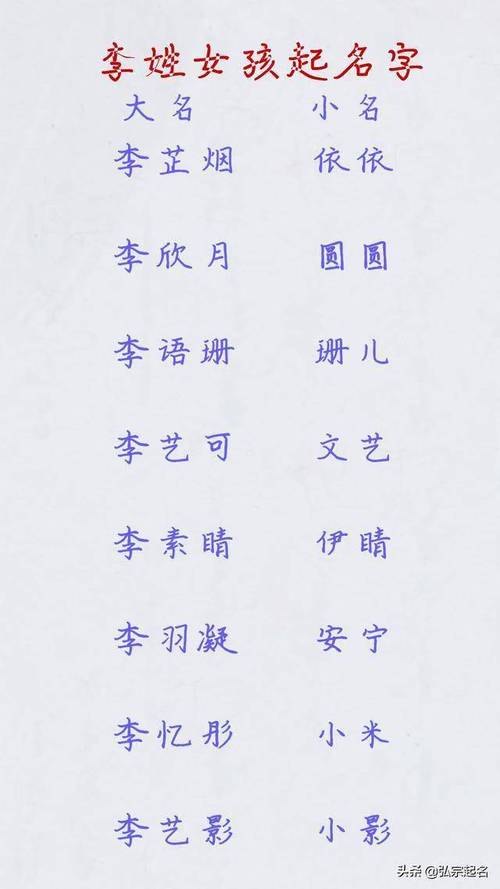 李姓女孩起名字
大名 小名
李芷烟 依依
李欣月 圆圆
李语珊 珊儿
李艺可 文艺
李素晴 伊晴
李羽凝 安宁
李忆彤 小米
李艺影 小影
头条 @弘宗起名